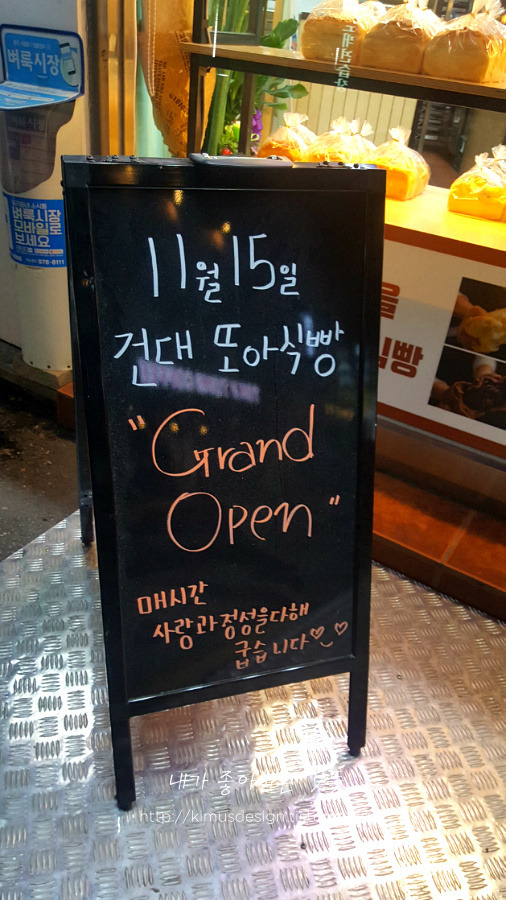 벼룩시장
벼룩시장
모바일로
보세요
11월 15일
건대 또아식빵
"Grand
Open"
매시간
사랑과 정성을 다해
굽습니다
을
식빵
내가 좋아
http://kimusdesign.ti